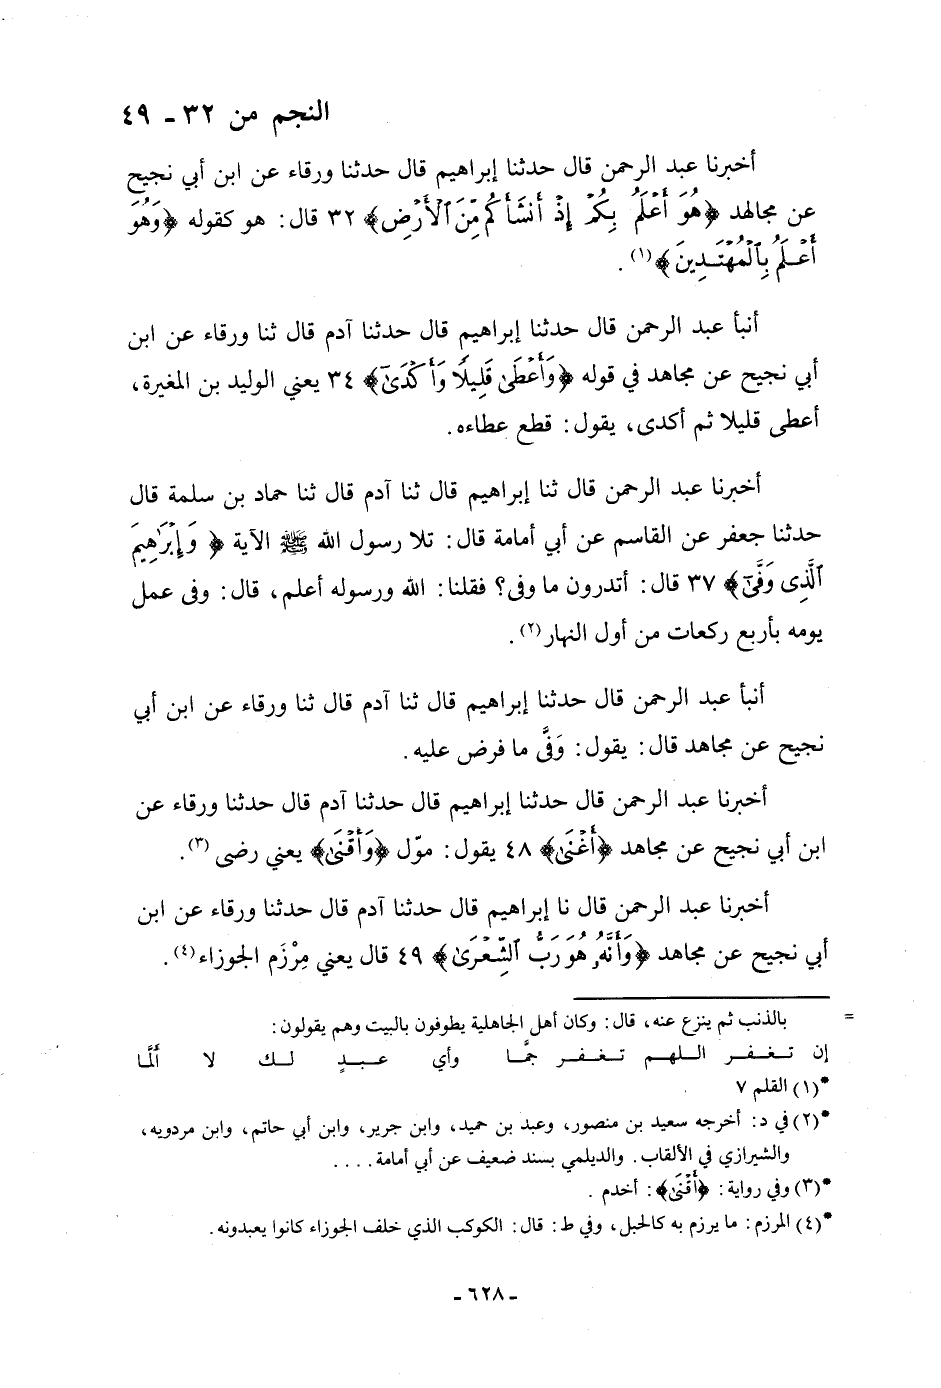 النجم من ٣٢ - ٤٩
أخبرنا عبد الرحمن قال حدثنا إبراهيم قال حدثنا ورقاء عن ابن أبي نجيح
عن مجالهد ﴿هُوَ أَعْلَمُ بِكُمْ إِذْ أَنشَأَكُم مِّنَ ٱلْأَرْضِ﴾ ٣٢ قال: هو كقوله ﴿وَهُوَ
أَعْلَمُ بِٱلْمُهْتَدِينَ﴾(١).
أنبأ عبد الرحمن قال حدثنا إبراهيم قال حدثنا آدم قال ثنا ورقاء عن ابن
أبي نجيح عن مجاهد في قوله ﴿وَأَعْطَىٰ قَلِيلًا وَأَكْدَىٰٓ﴾ ٣٤ يعني الوليد بن المغيرة،
أعطى قليلا ثم أكدى، يقول: قطع عطاءه.
أخبرنا عبد الرحمن قال ثنا إبراهيم قال ثنا آدم قال ثنا حماد بن سلمة قال
حدثنا جعفر عن القاسم عن أبي أمامة قال: تلا رسول الله ﷺ الآية ﴿وَإِبْرَٰهِيمَ
ٱلَّذِى وَفَّىٰٓ﴾ ٣٧ قال: أتدرون ما وفى؟ فقلنا: الله ورسوله أعلم، قال: وفى عمل
يومه بأربع ركعات من أول النهار(٢).
أنبأ عبد الرحمن قال حدثنا إبراهيم قال ثنا آدم قال ثنا ورقاء عن ابن أبي
نجيح عن مجاهد قال: يقول: وَفَّى ما فرض عليه.
أخبرنا عبد الرحمن قال حدثنا إبراهيم قال حدثنا آدم قال حدثنا ورقاء عن
ابن أبي نجيح عن مجاهد ﴿أَغْنَىٰ﴾ ٤٨ يقول: موّل ﴿وَأَقْنَىٰ﴾ يعني رضى(٣).
أخبرنا عبد الرحمن قال نا إبراهيم قال حدثنا آدم قال حدثنا ورقاء عن ابن
أبي نجيح عن مجاهد ﴿وَأَنَّهُۥ هُوَ رَبُّ ٱلشِّعْرَىٰ﴾ ٤٩ قال يعني مِرْزَم الجوزاء(٤).
= بالذنب ثم ينزع عنه، قال: وكان أهل الجاهلية يطوفون بالبيت وهم يقولون:
إن تـغـفـر الـلـهم تـغـفـر جمَّا وأي عـبـدٍ لـك لا ألَمَّا
*(١) القلم ٧
*(٢) في د: أخرجه سعيد بن منصور، وعبد بن حميد، وابن جرير، وابن أبي حاتم، وابن مردويه،
والشيرازي في الألقاب. والديلمي بسند ضعيف عن أبي أمامة....
*(٣) وفي رواية: ﴿أَقْنَىٰ﴾: أخدم.
*(٤) المرزم: ما يرزم به كالحبل، وفي ط: قال: الكوكب الذي خلف الجوزاء كانوا يعبدونه.
- ٦٢٨ -